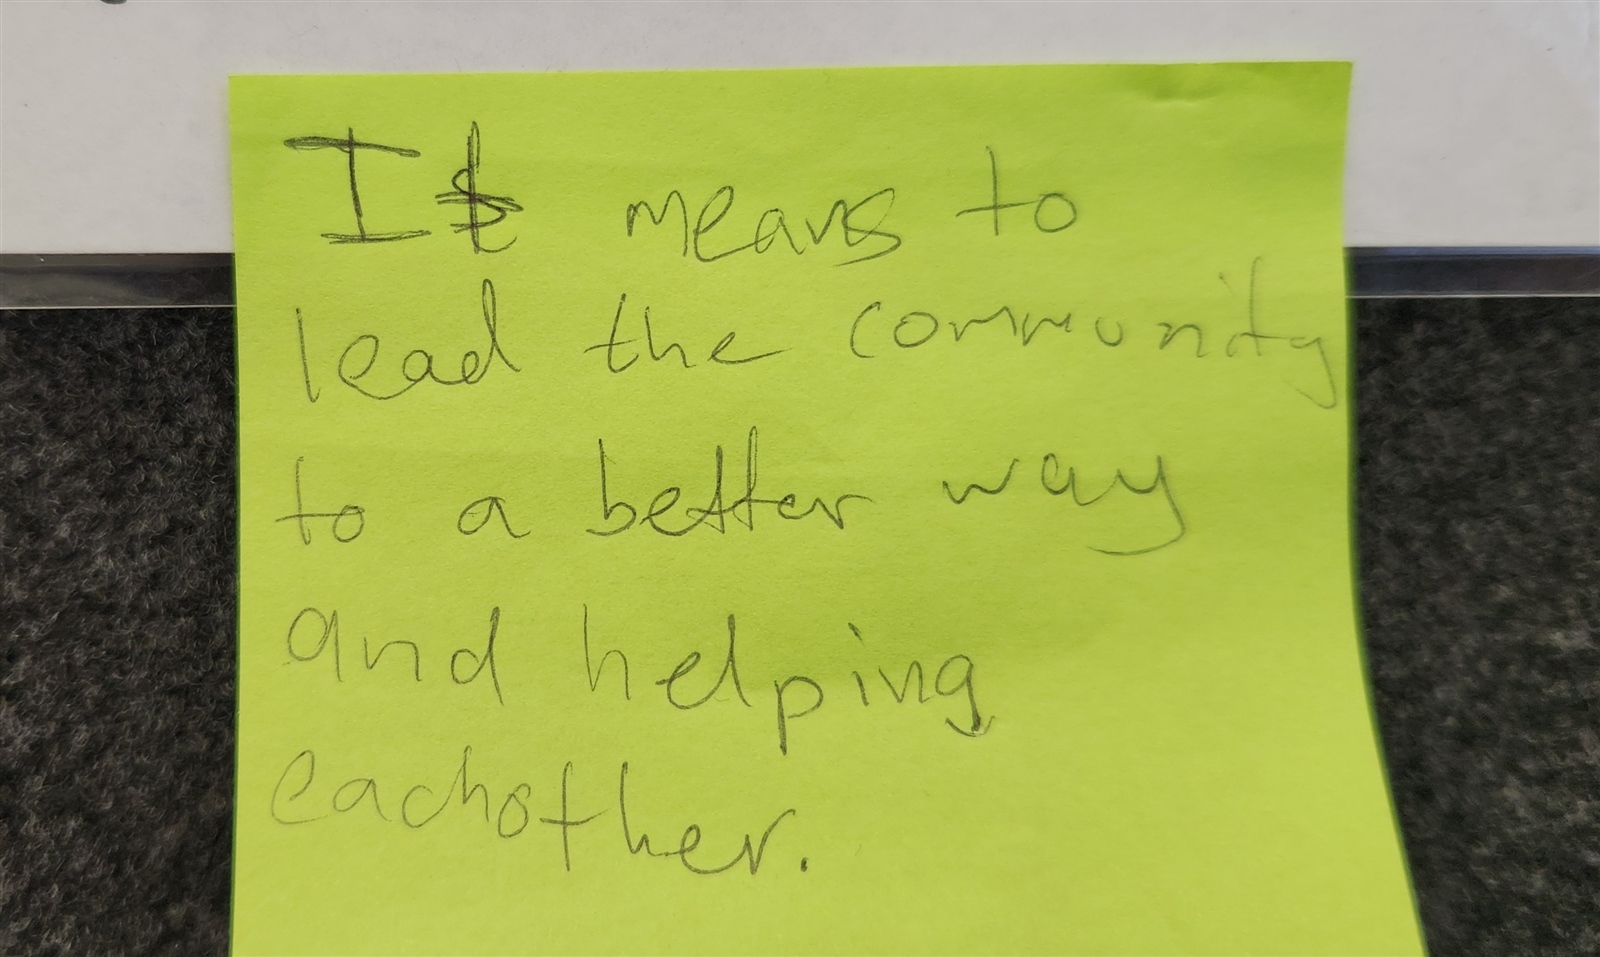 It means to
lead the community
to a better way
and helping
eachother.